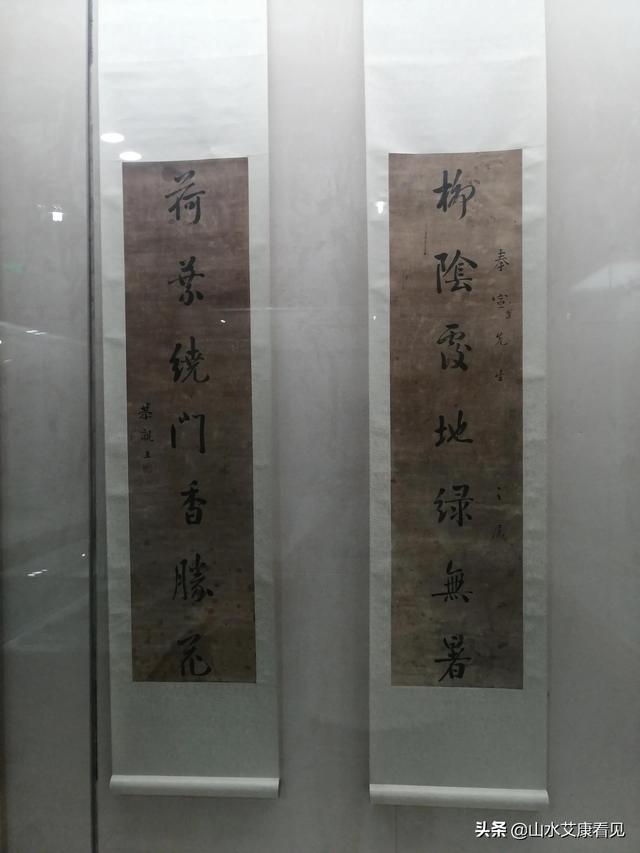 柳陰覆地緑無暑
奉 先生
荷葉繞門香勝花
恭親王
头条 @山水艾康看见